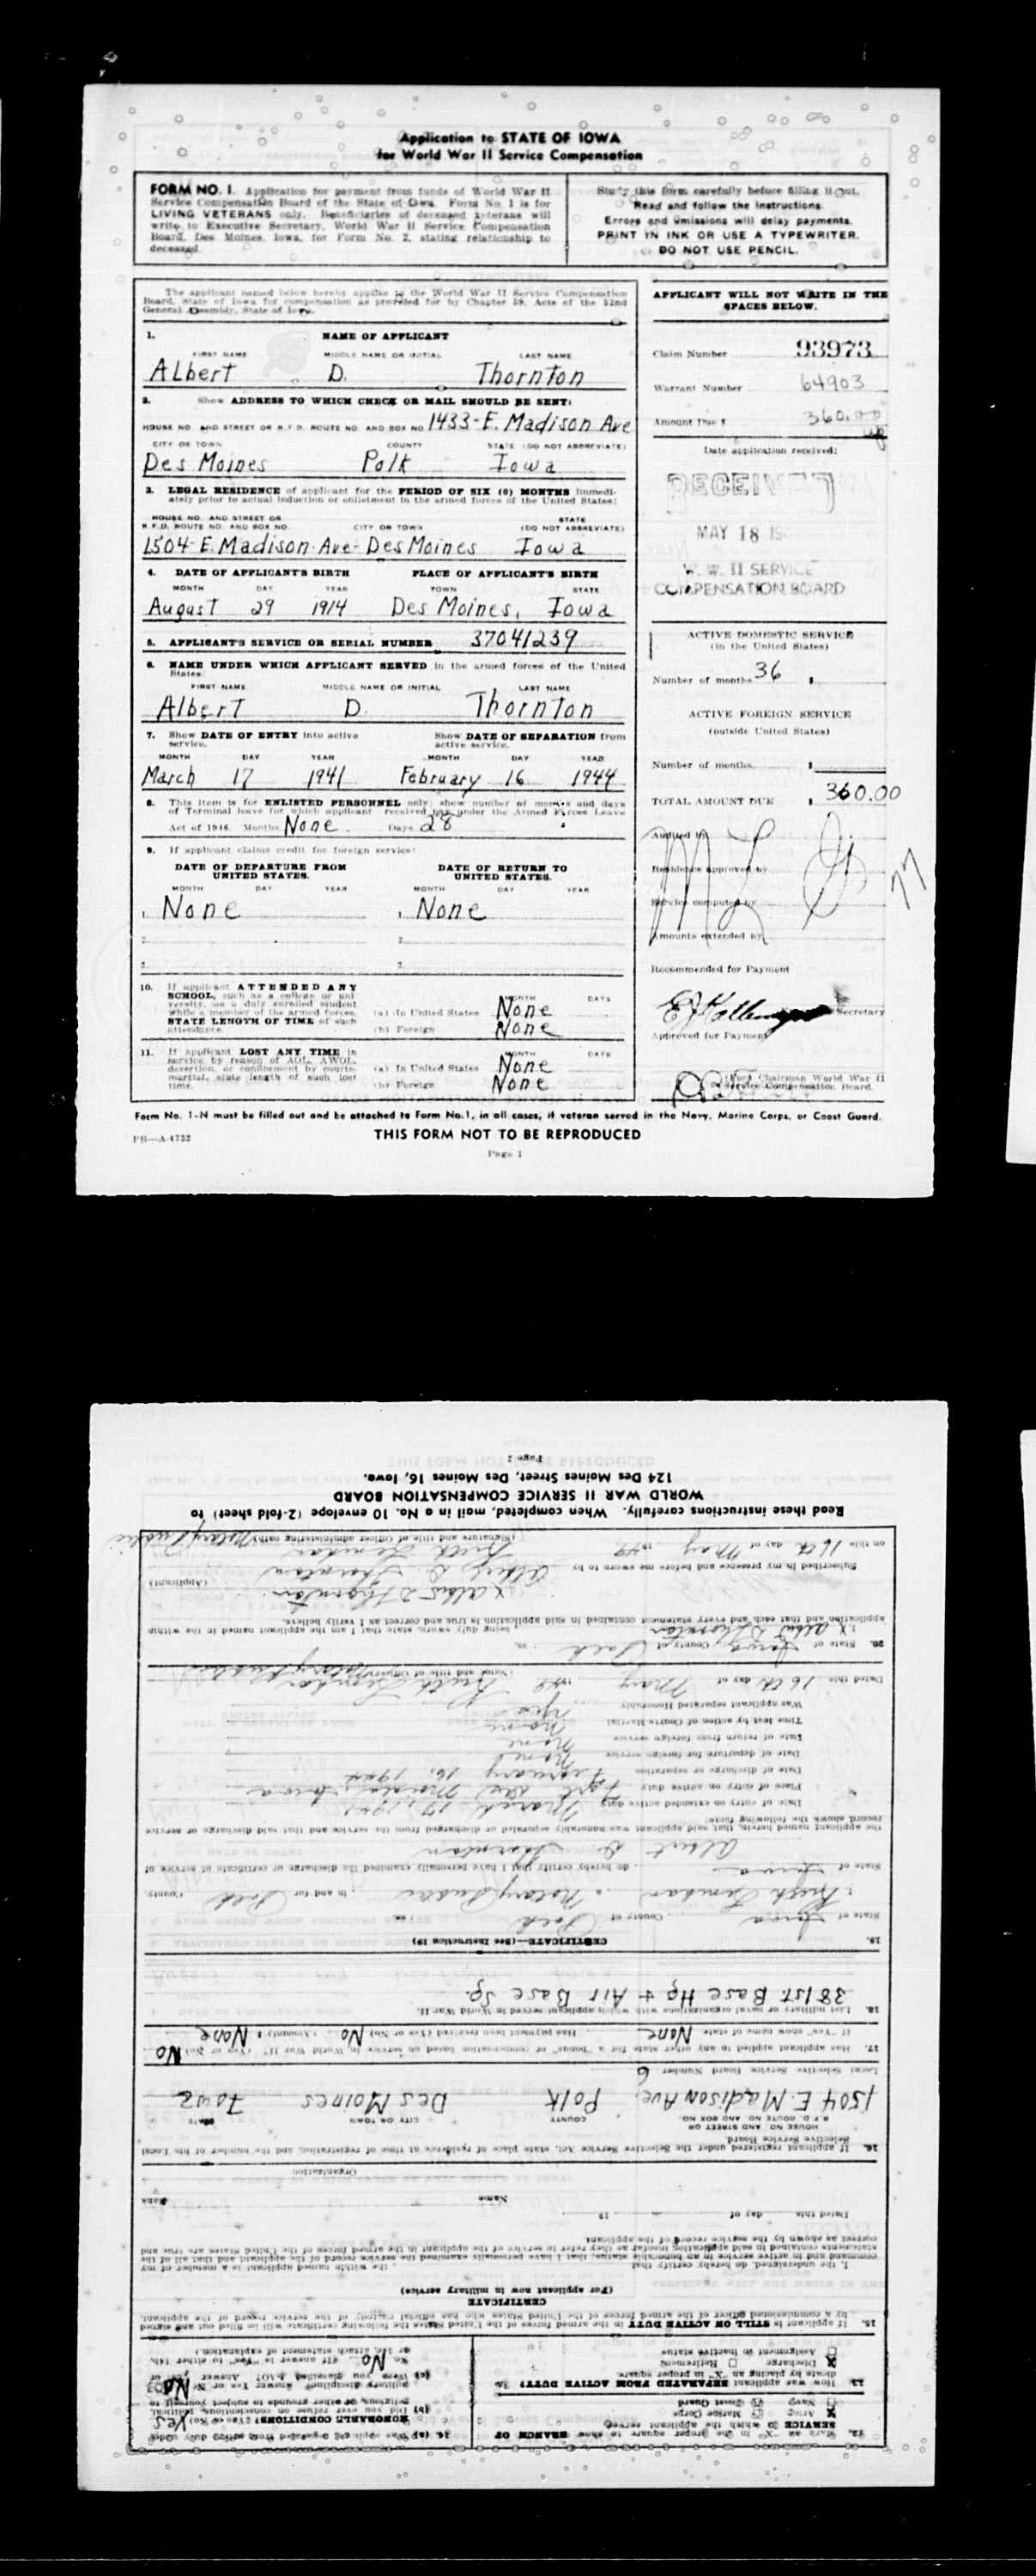 Application to STATE OF IOWA
for World War II Service Compensation
FORM NO. 1. Application for payment from funds of World War II
Service Compensation Board of the State of Iowa. Form No. 1 is for
LIVING VETERANS only. Beneficiaries of deceased veterans will
write to Executive Secretary, World War II Service Compensation
Board, Des Moines, Iowa, for Form No. 2, stating relationship to
deceased.
Study this form carefully before filling it out.
Read and follow the instructions
Errors and omissions will delay payments.
PRINT IN INK OR USE A TYPEWRITER.
DO NOT USE PENCIL.
The applicant named below hereby applies to the World War II Service Compensation
Board, State of Iowa for compensation as provided for by Chapter 59, Acts of the 52nd
General Assembly, State of Iowa.
1. NAME OF APPLICANT
FIRST NAME MIDDLE NAME OR INITIAL LAST NAME
Albert D. Thornton
2. Show ADDRESS TO WHICH CHECK OR MAIL SHOULD BE SENT:
HOUSE NO. AND STREET OR R.F.D. ROUTE NO. AND BOX NO. 1433-E. Madison Ave
CITY OR TOWN COUNTY STATE (DO NOT ABBREVIATE)
Des Moines Polk Iowa
3. LEGAL RESIDENCE of applicant for the PERIOD OF SIX (6) MONTHS immedi-
ately prior to actual induction or enlistment in the armed forces of the United States:
HOUSE NO. AND STREET OR
R.F.D. ROUTE NO. AND BOX NO. CITY OR TOWN STATE (DO NOT ABBREVIATE)
1504-E. Madison-Ave- Des Moines Iowa
4. DATE OF APPLICANT'S BIRTH PLACE OF APPLICANT'S BIRTH
MONTH DAY YEAR TOWN STATE
August 29 1914 Des Moines, Iowa
5. APPLICANT'S SERVICE OR SERIAL NUMBER 37041239
6. NAME UNDER WHICH APPLICANT SERVED in the armed forces of the United
States:
FIRST NAME MIDDLE NAME OR INITIAL LAST NAME
Albert D. Thornton
7. Show DATE OF ENTRY into active
service.
Show DATE OF SEPARATION from
active service.
MONTH DAY YEAR MONTH DAY YEAR
March 17 1941 February 16 1944
8. This item is for ENLISTED PERSONNEL only; show number of months and days
of Terminal leave for which applicant received pay under the Armed Forces Leave
Act of 1946. Months None Days 28
9. If applicant claims credit for foreign service:
DATE OF DEPARTURE FROM
UNITED STATES.
DATE OF RETURN TO
UNITED STATES.
MONTH DAY YEAR MONTH DAY YEAR
1. None 1. None
2. 2.
3. 3.
10. If applicant ATTENDED ANY
SCHOOL, such as a college or uni-
versity, as a duly enrolled student
while a member of the armed forces,
STATE LENGTH OF TIME of such
attendance.
MONTH DAYS
(a) In United States None
(b) Foreign None
11. If applicant LOST ANY TIME in
service by reason of AOL, AWOL,
desertion, or confinement by courts-
martial, state length of such lost
time.
MONTH DAYS
(a) In United States None
(b) Foreign None
APPLICANT WILL NOT WRITE IN THE
SPACES BELOW.
Claim Number 93973
Warrant Number 64903
Amount Due $ 360.00
Date application received:
RECEIVED
MAY 18 19
W. W. II SERVICE
COMPENSATION BOARD
ACTIVE DOMESTIC SERVICE
(in the United States)
Number of months 36 $
ACTIVE FOREIGN SERVICE
(outside United States)
Number of months $
TOTAL AMOUNT DUE $ 360.00
Audited by
Residence approved by
Service computed by
Amounts extended by
77
Recommended for Payment
Secretary
Approved for Payment
(For) Chairman World War II
Service Compensation Board.
Form No. 1-N must be filled out and be attached to Form No. 1, in all cases, if veteran served in the Navy, Marine Corps, or Coast Guard.
PB—A-4732
THIS FORM NOT TO BE REPRODUCED
Page 1
12. Mark an "X" in the proper square to show BRANCH OF
SERVICE in which the applicant served:
Army Marine Corps
Navy Coast Guard
13. How was applicant SEPARATED FROM ACTIVE DUTY? In-
dicate by placing an "X" in proper square.
Discharge Retirement
Assignment to inactive status
14. (a) Was applicant separated from active duty under
HONORABLE CONDITIONS? (Yes or No) Yes
(b) Did you ever refuse on conscientious, political,
religious, or other grounds to subject yourself to
military discipline? Answer Yes or No No
(c) Were you classified 4-AO? Answer Yes or
No No (If answer is "Yes" to either 14b,
or 14c, attach statement of explanation.)
15. If applicant is STILL ON ACTIVE DUTY in the armed forces of the United States the following certificate will be filled out and signed
by a commissioned officer of the armed forces of the United States who has official custody of the service record of the applicant.
CERTIFICATE
(For applicant now in military service)
I, the undersigned, do hereby certify that the within named applicant is a member of my
command and in active service in an honorable status, that I have personally examined the service record of the applicant and that all of the
statements contained in said application insofar as they refer to service of the applicant in the armed forces of the United States are true and
correct as shown by the service record of the applicant.
Dated this day of 19
Name Rank
Organization
16. If applicant registered under the Selective Service Act, state place of residence at time of registration, and the number of his Local
Selective Service Board.
HOUSE NO. AND STREET OR
R.F.D. ROUTE NO. AND BOX NO. COUNTY CITY OR TOWN STATE
1504 E. Madison Ave. Polk Des Moines Iowa
Local Selective Service Board Number 6
17. Has applicant applied to any other state for a "bonus" or compensation based on service in World War II? (Yes or No) No
If "Yes" show name of state None Has payment been received (Yes or No) No (Amount) $ None
18. List military or naval organizations with which applicant served in World War II.
381st Base Hq + Air Base Sq.
19. CERTIFICATE—(See Instruction 19)
State of Iowa County of Polk ss:
I, Ruth a Notary Public in and for Polk County,
State of Iowa do hereby certify that I have personally examined the discharge or certificate of service of
Albert D. Thornton
the applicant named herein, that said applicant was honorably separated or discharged from the service and that said discharge or service
record shows the following facts:
Date of entry on extended active duty March 17, 1941
Place of entry on active duty Fort Des Moines, Iowa
Date of discharge or separation February 16, 1944
Date of departure for foreign service None
Date of return from foreign service None
Time lost by action of Courts-Martial None
Was applicant separated Honorably Yes
Dated this 16th day of May 1949 Ruth Notary Public
(Name and title of Officer)
20. State of Iowa County of Polk ss.
I, Albert D Thornton being duly sworn, state that I am the applicant named in the within
application and that each and every statement contained in said application is true and correct as I verily believe.
X Albert D Thornton (Applicant)
Subscribed in my presence and before me sworn to by Albert D. Thornton
on this 16th day of May 1949 Ruth
(Signature and title of officer administering oath) Notary Public
Read these instructions carefully. When completed, mail in a No. 10 envelope (2-fold sheet) to
WORLD WAR II SERVICE COMPENSATION BOARD
124 Des Moines Street, Des Moines 16, Iowa.
Page 2